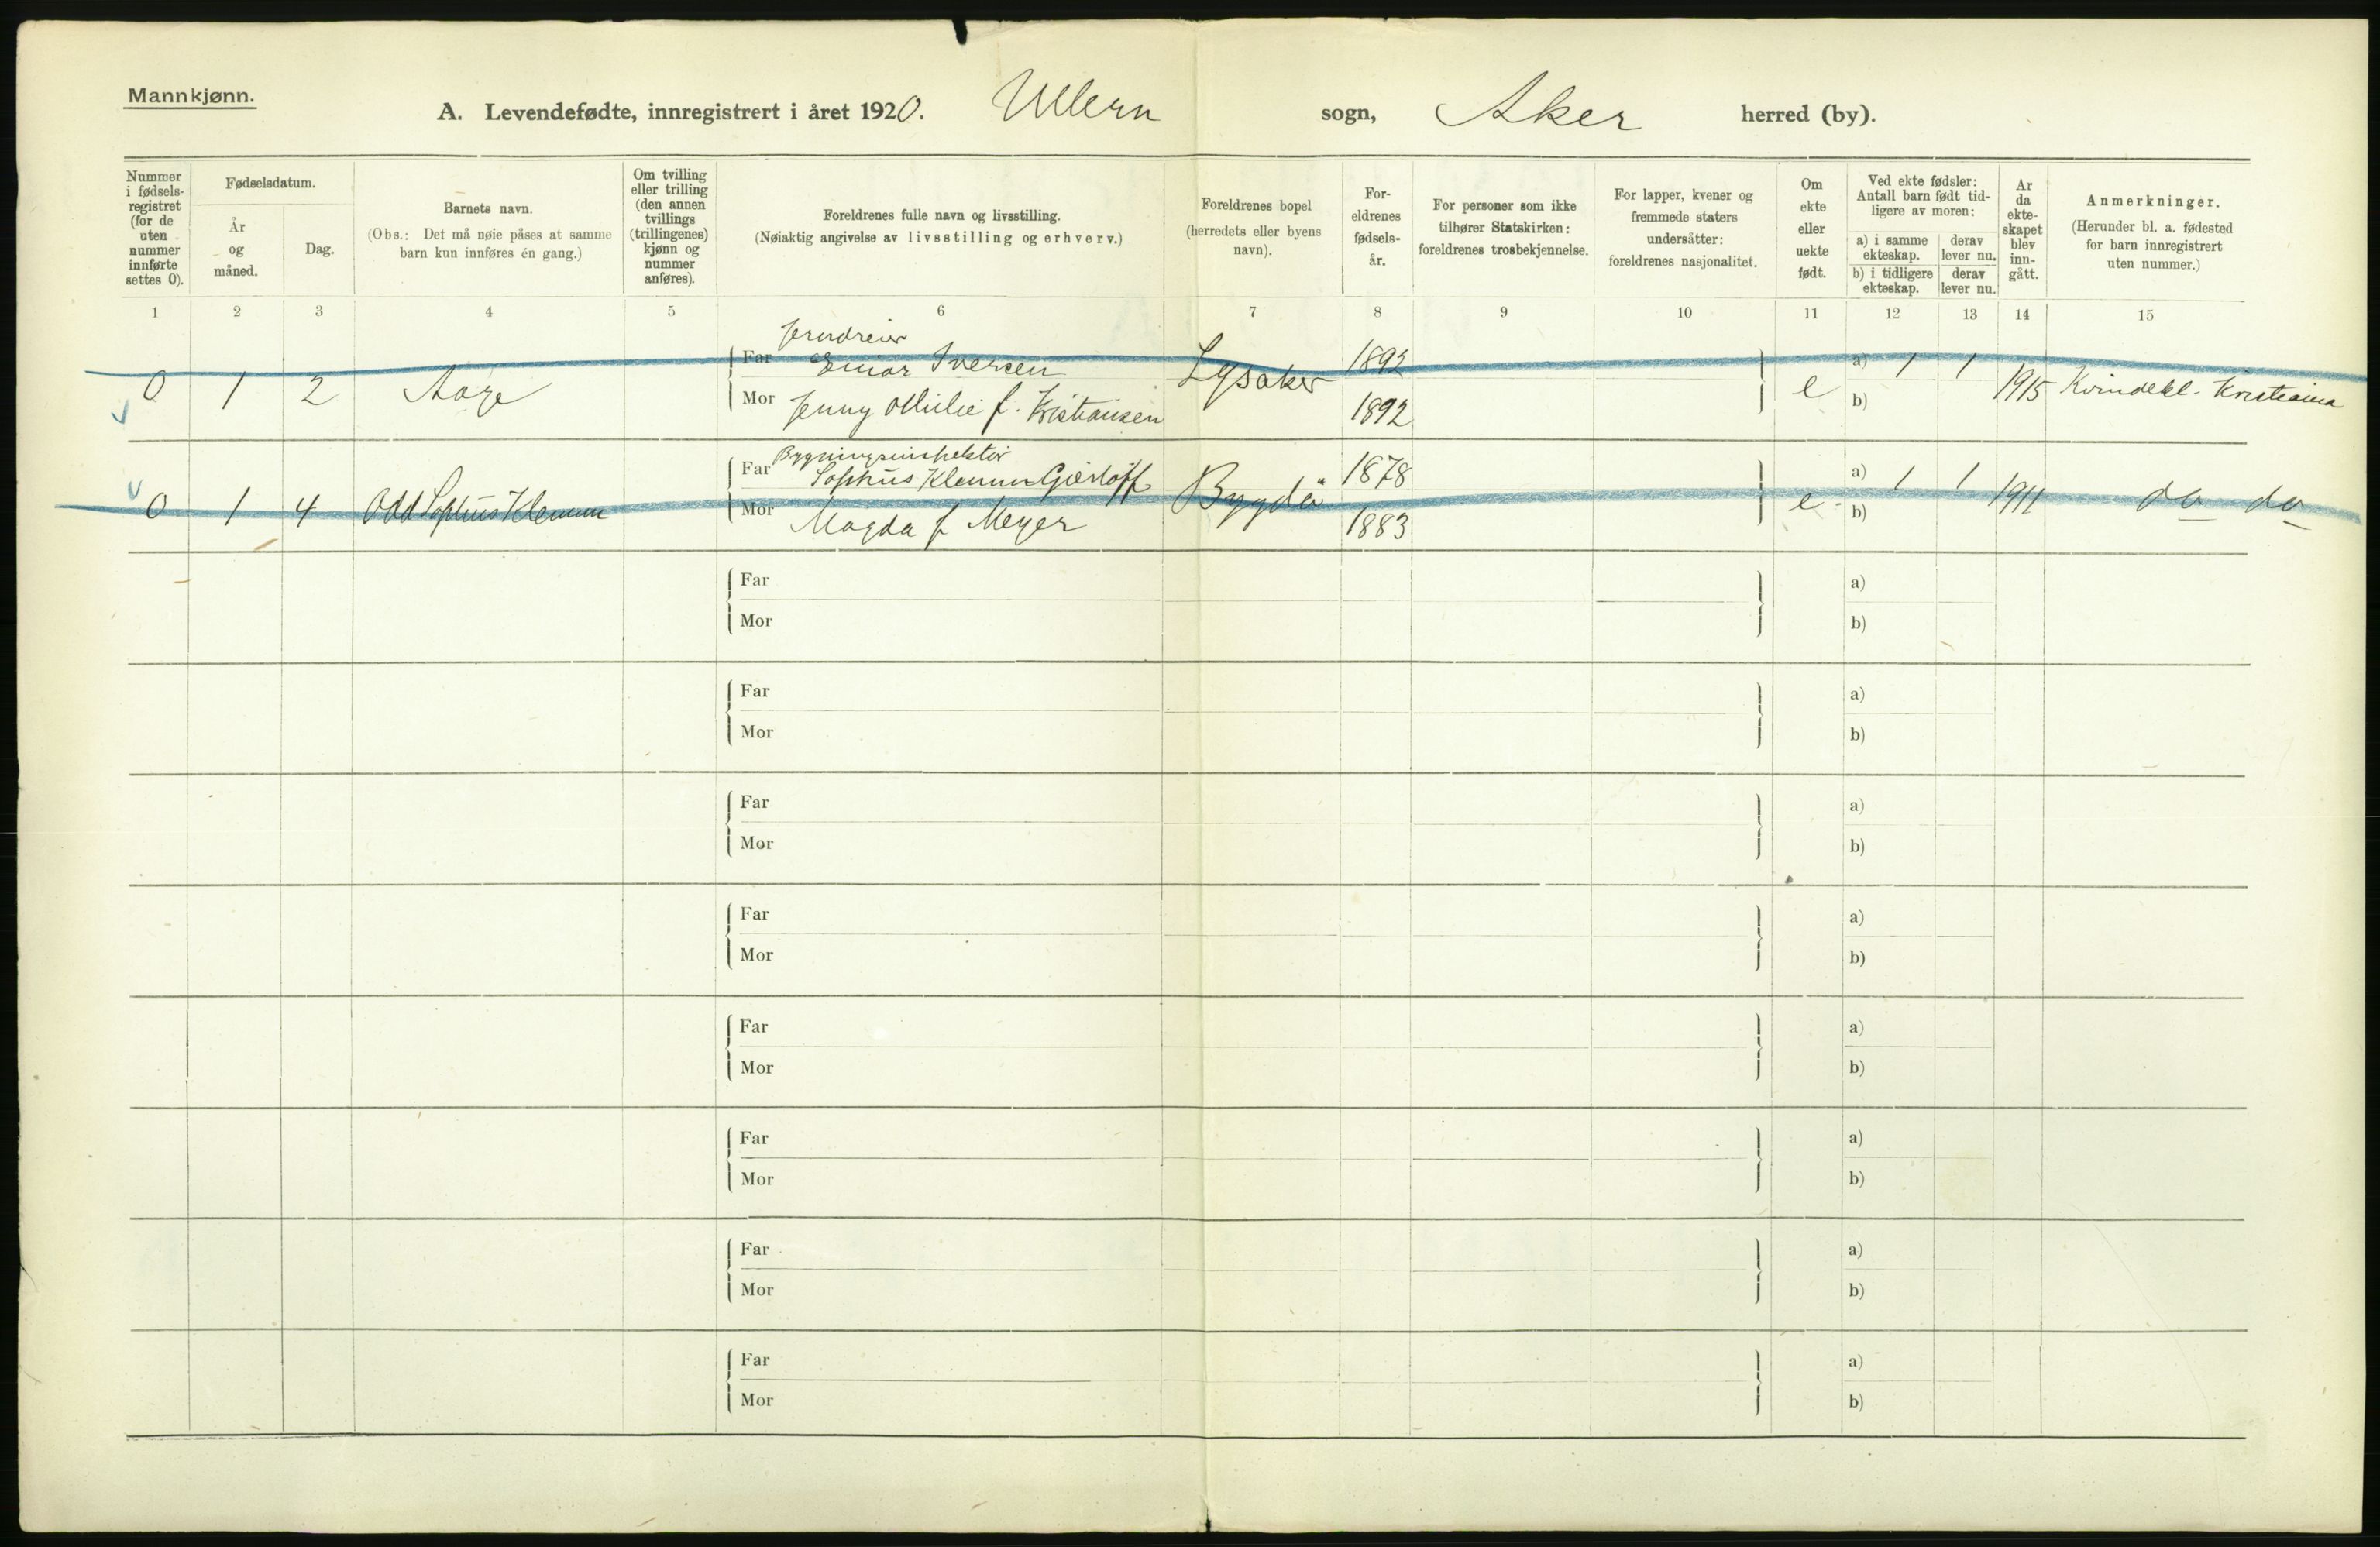 Mannkjønn.
A. Levendefødte, innregistrert i året 1920. Ullern sogn, Aker herred (by).
Nummer i fødsels-registret (for de uten nummer innførte settes 0).
Fødselsdatum.
År og måned.
Dag.
Barnets navn.
(Obs.: Det må nøie påses at samme barn kun innføres én gang.)
Om tvilling eller trilling (den annen tvillings (trillingenes) kjønn og nummer anføres).
Foreldrenes fulle navn og livsstilling.
(Nøiaktig angivelse av livsstilling og erhverv.)
Foreldrenes bopel (herredets eller byens navn).
For-eldrenes fødsels-år.
For personer som ikke tilhører Statskirken: foreldrenes trosbekjennelse.
For lapper, kvener og fremmede staters undersåtter: foreldrenes nasjonalitet.
Om ekte eller uekte født.
Ved ekte fødsler: Antall barn født tid-ligere av moren:
a) i samme ekteskap.
derav lever nu.
b) i tidligere ekteskap.
derav lever nu.
År da ekte-skapet blev inn-gått.
Anmerkninger.
(Herunder bl. a. fødested for barn innregistrert uten nummer.)
1 2 3 4 5 6 7 8 9 10 11 12 13 14 15
Jerndreier
0 1 2 Aage Far Einar Iversen Lysaker 1892 e a) 1 1 1915 Kvindekl. Kristiania
Mor Jenny Othilie f. Kristiansen 1892 b)
Bygningsinspektør
0 1 4 Odd Sophus Klemm Far Sophus Klemm Gierløff Bygdö 1878 e. a) 1 1 1911 do do
Mor Magda f Meyer 1883 b)
Far a)
Mor b)
Far a)
Mor b)
Far a)
Mor b)
Far a)
Mor b)
Far a)
Mor b)
Far a)
Mor b)
Far a)
Mor b)
Far a)
Mor b)